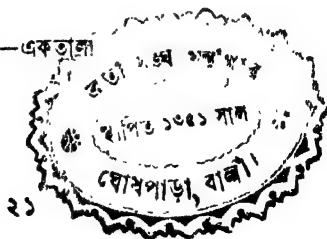 —একতালা
স্থাপিত ১৩৫১ সাল
ঘোষপাড়া, বালী।
২১